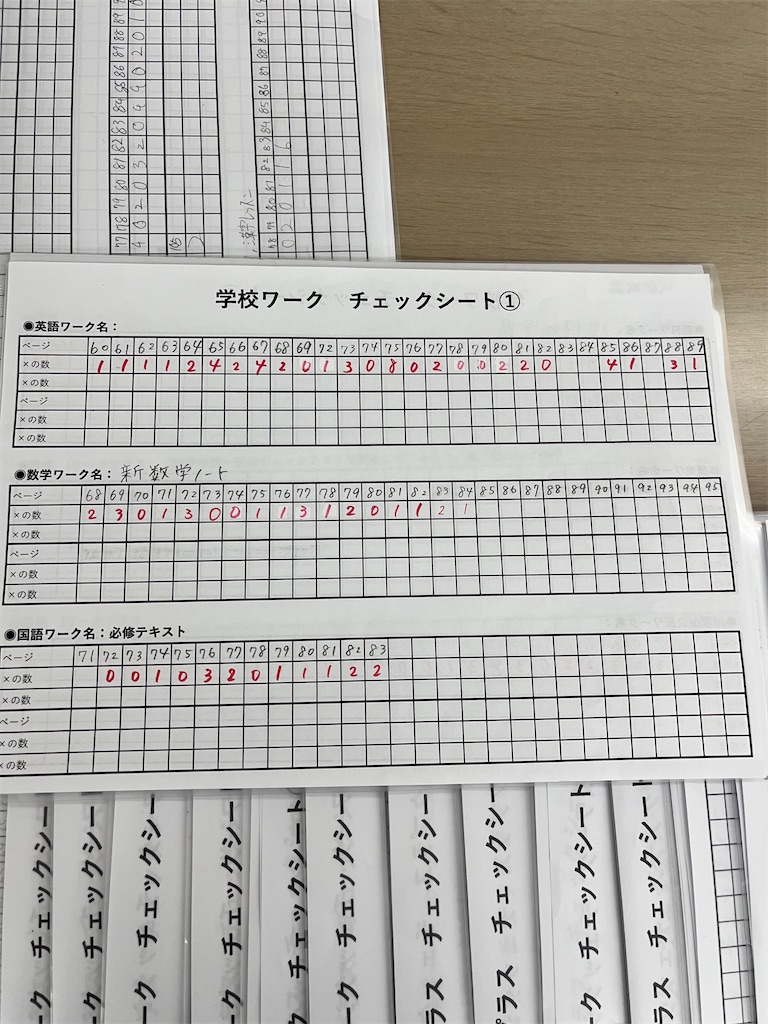 77 78 79 80 81 82 83 84 85 86 87 88 89
4 0 2 0 3 2 0 9 9 0 2 0 1 0
漢字レッスン
78 79 80 81 82 83 84 85 86 87 88 89 90
0 2 0 1 1 6
学校ワーク チェックシート①
◉英語ワーク名：
ページ 60 61 62 63 64 65 66 67 68 69 72 73 74 75 76 77 78 79 80 81 82 83 84 85 86 87 88 89
×の数 1 1 1 1 2 4 2 4 2 0 1 3 0 8 0 2 0 0 2 2 0 4 1 3 1
×の数
ページ
×の数
×の数
◉数学ワーク名：新数学ノート
ページ 68 69 70 71 72 73 74 75 76 77 78 79 80 81 82 83 84 85 86 87 88 89 90 91 92 93 94 95
×の数 2 3 0 1 3 0 0 1 1 3 1 2 0 1 1 2 1
×の数
ページ
×の数
×の数
◉国語ワーク名：必修テキスト
ページ 71 72 73 74 75 76 77 78 79 80 81 82 83
×の数 0 0 1 0 3 2 0 1 1 1 2 2
×の数
ページ
×の数
×の数
ーク チェックシー
ク チェックシー
ーク チェックシー
ーク チェックシー
ク チェックシート
ーク チェックシー
ラス チェックシー
プラス チェックシー
ーク チェックシー
ラス チェックシー